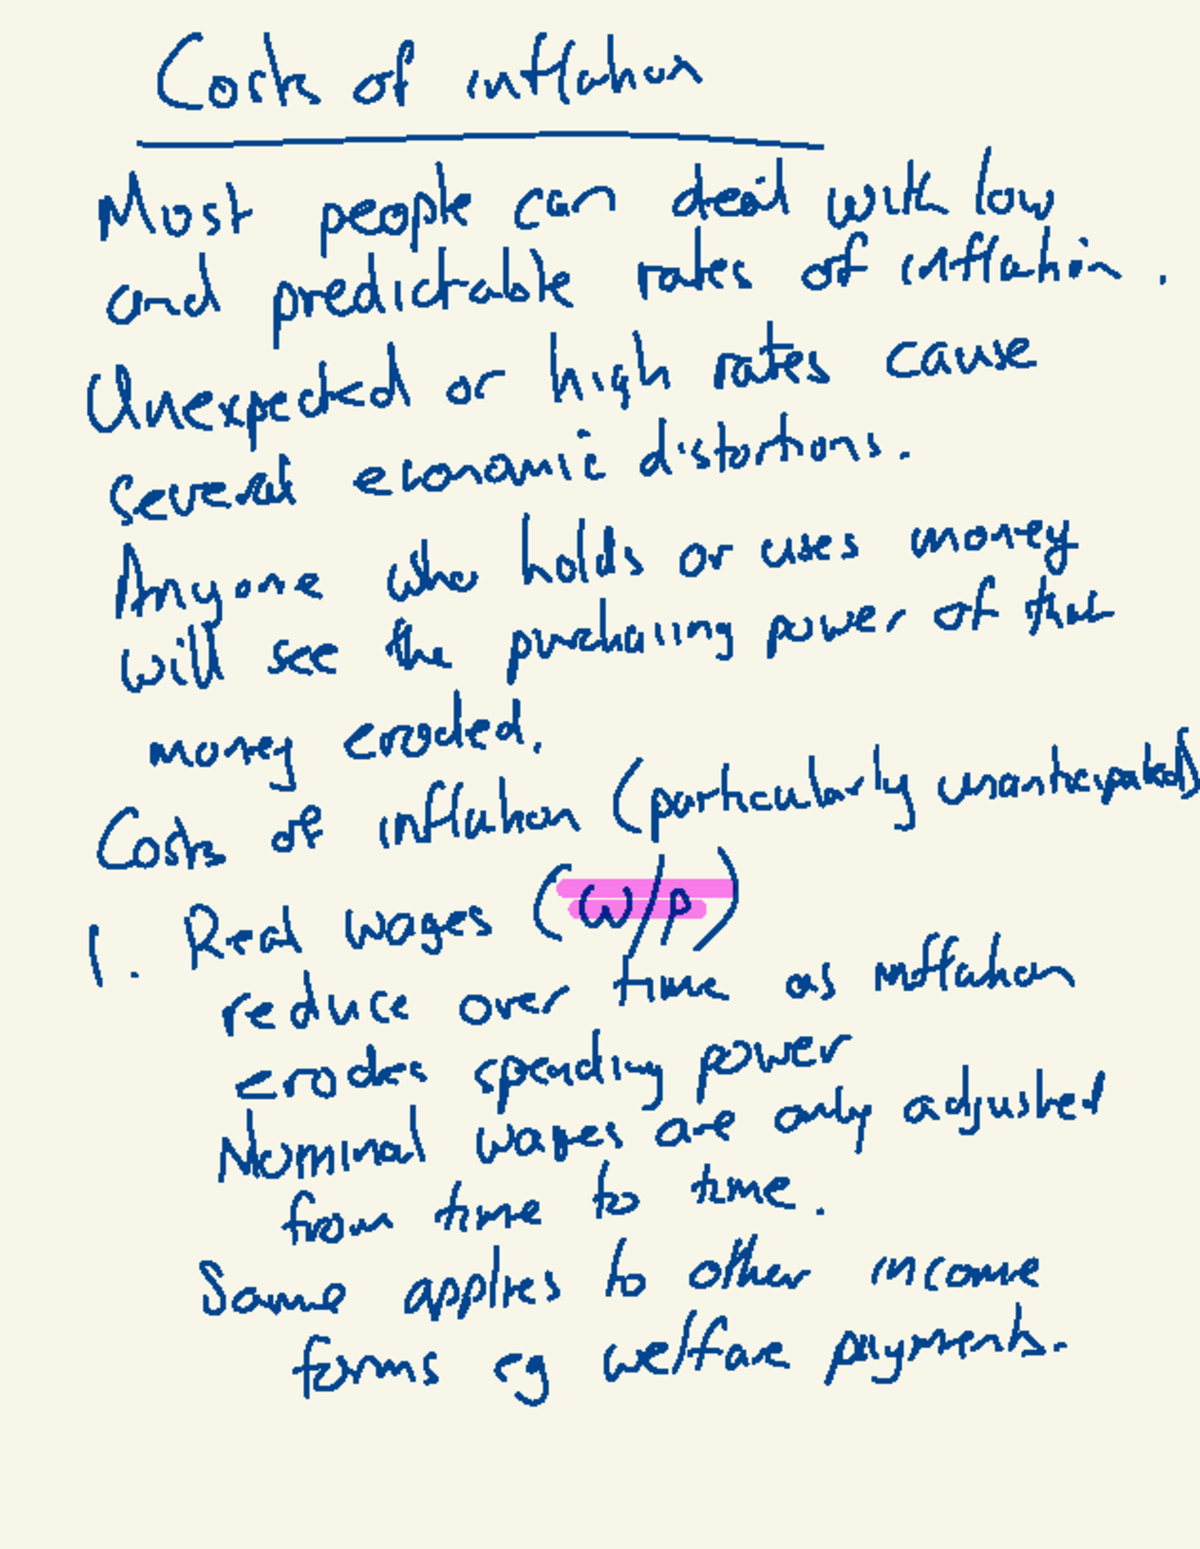 Costs of inflation
Most people can deal with low
and predictable rates of inflation.
Unexpected or high rates cause
several economic distortions.
Anyone who holds or uses money
will see the purchasing power of that
money eroded.
Costs of inflation (particularly unanticipated)
1. Real wages (W/P)
reduce over time as inflation
erodes spending power
Nominal wages are only adjusted
from time to time.
Same applies to other income
forms eg welfare payments.